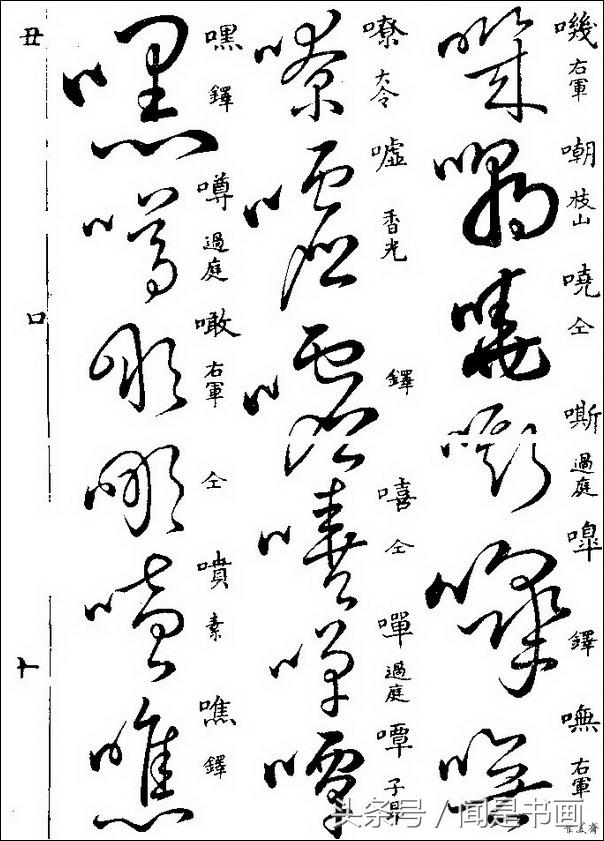 嘰 右軍
嘲 枝山
嘵 仝
嘶 過庭
嘷 鐸
嘸 右軍
嘹 大令
噓 香光
鐸
嘻 仝
嘽 過庭
嘾 子昂
嘿 鐸
噂 過庭
噉 右軍
仝
噴 素
噍 鐸
丑
口
十
头条号 / 闻是书画